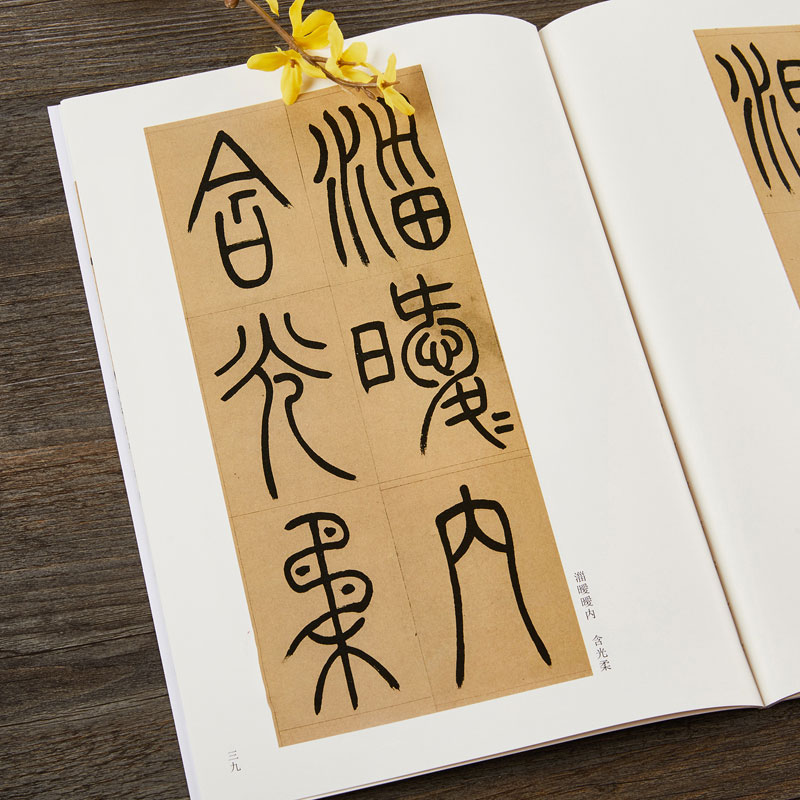 淄暧=内
含光柔
淄暧暧内 含光柔
三九